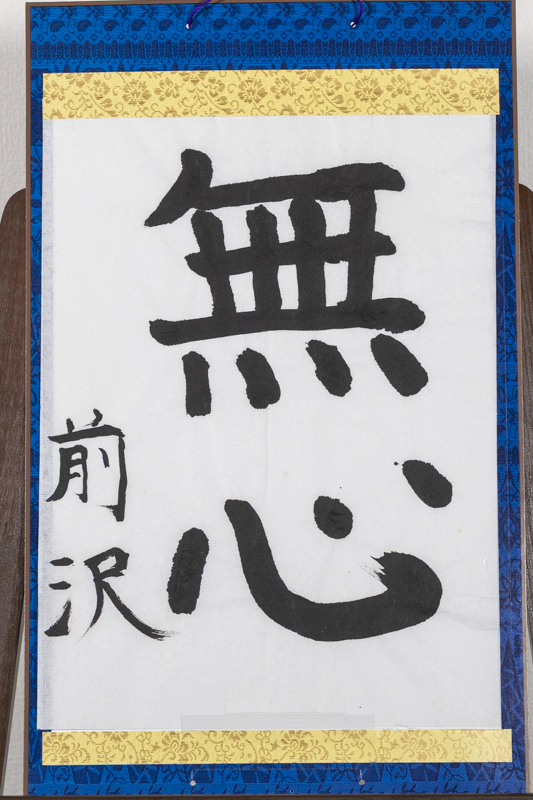 無心
前沢